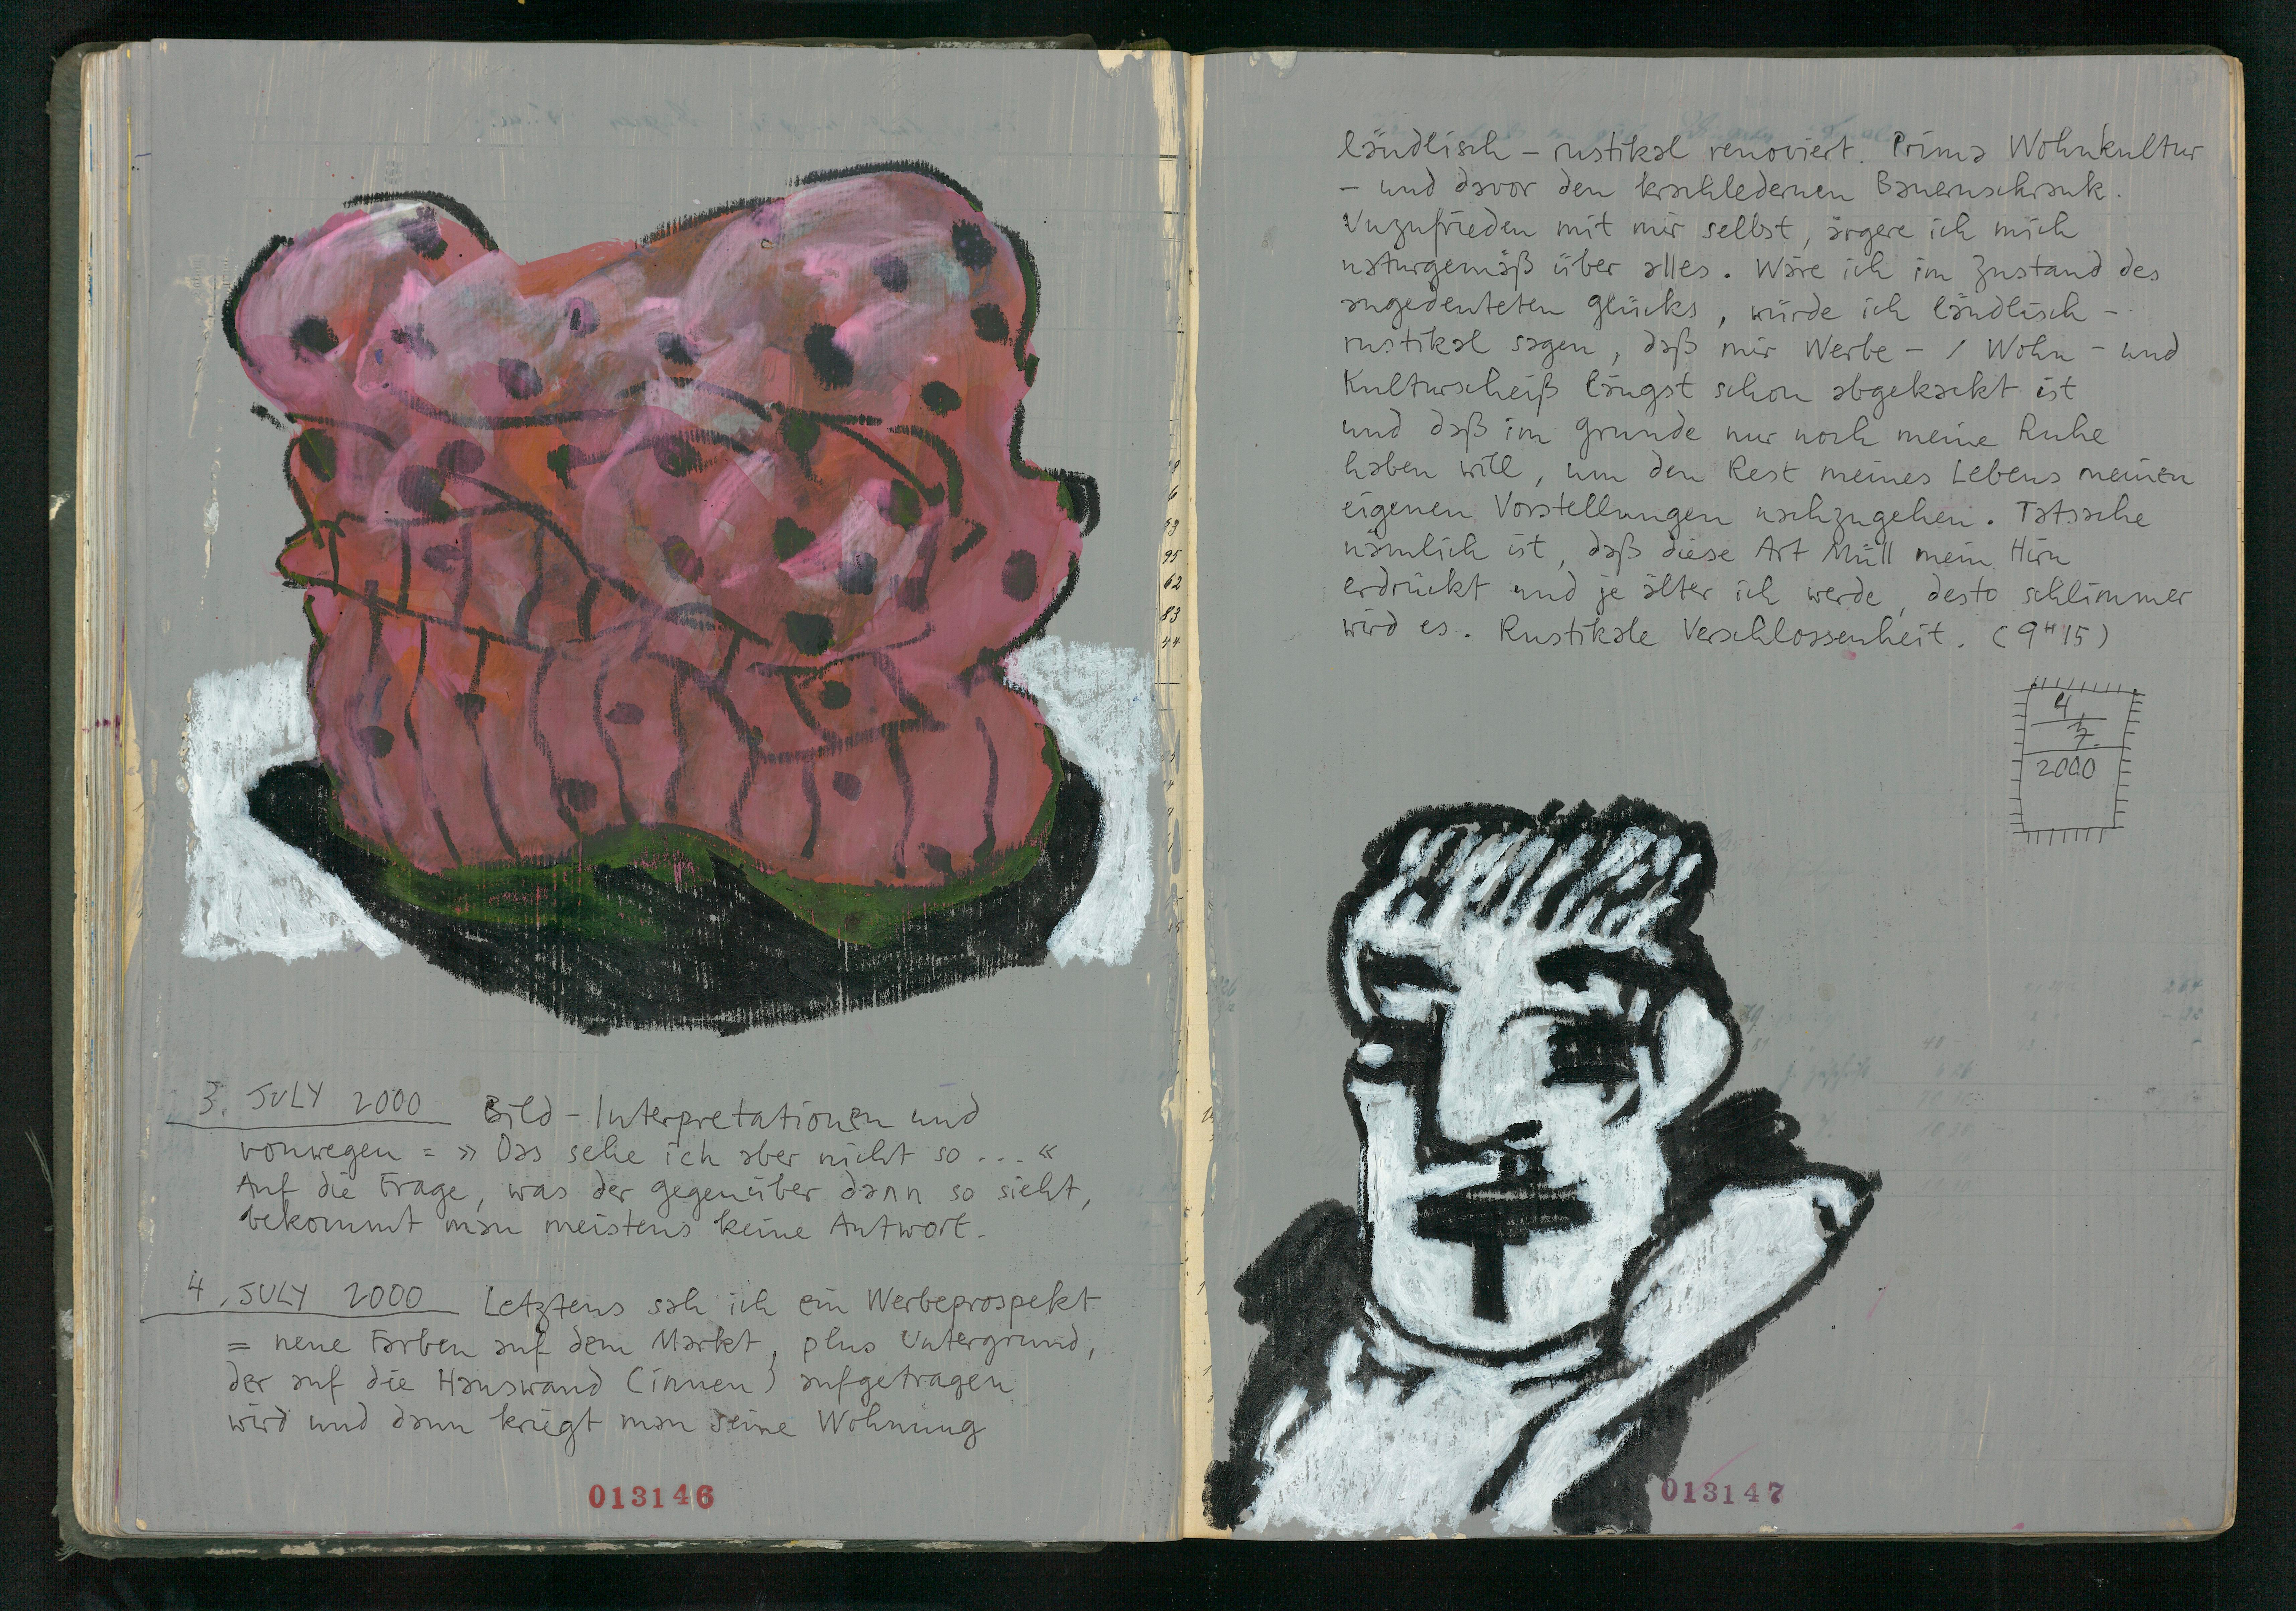 3. JULY 2000 Bild - Interpretationen und
vonwegen = » Das sehe ich aber nicht so ... «
Auf die Frage, was der gegenüber dann so sieht,
bekommt man meistens keine Antwort.
4. JULY 2000 Letztens sah ich ein Werbeprospekt
= neue Farben auf dem Markt, plus Untergrund,
der auf die Hauswand (innen) aufgetragen
wird und dann kriegt man seine Wohnung
013146
ländlisch - rustikal renoviert. Prima Wohnkultur
- und davor den krachledernen Bauernschrank.
Unzufrieden mit mir selbst, ärgere ich mich
naturgemäß über alles. Wäre ich im Zustand des
angedeuteten glücks, würde ich ländlisch -
rustikal sagen, daß mir Werbe - / Wohn - und
Kulturscheiß längst schon abgekackt ist
und daß im grunde nur noch meine Ruhe
haben will, um den Rest meines Lebens meinen
eigenen Vorstellungen nachzugehen. Tatsache
nämlich ist, daß diese Art Müll mein Hirn
erdrückt und je älter ich werde, desto schlimmer
wird es. Rustikale Verschlossenheit. (9H15)
4
7.
2000
013147
95
62
83
44